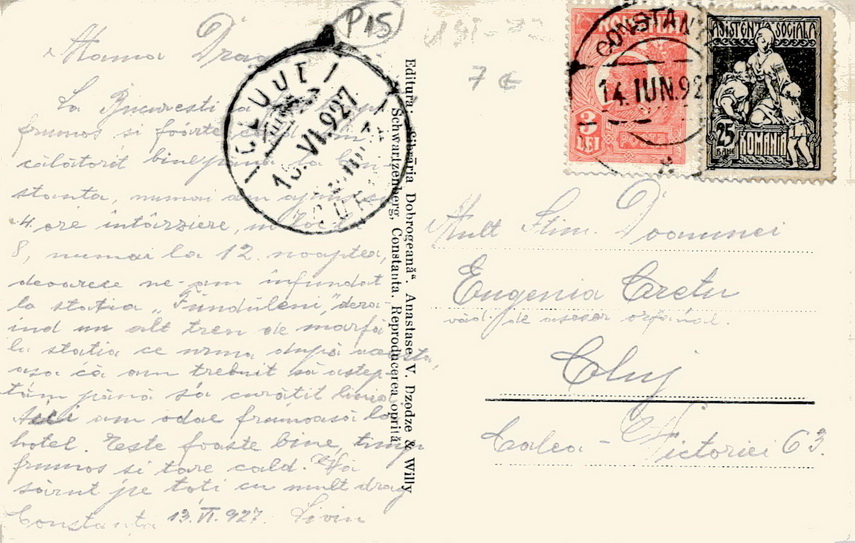 P15
7 €
Mama Dragă
La Bucuresti a
frumos si foarte
călătorit bine până la
stanta, numai am
4 ore intârziere, in loc
8, numai la 12. noaptea,
deoarece ne-am infundat
la statia „Funduleni", dera
ind un alt tren de marfa
la statia ce urma după această
asa că am trebuit sa astep
tăm până s'a curătit linia
Aici am odae frumoasă la
hotel. Este foaste bine, timp
frumos si tare cald. Vă
sărut pe toti cu mult drag
Constanța 13.VI.927. Livin
CLUJ
15 VI.927
Editura „Librăria Dobrogeană". Anastase V. Dzodze & Willy
Schwartzenberg, Constanta. Reproducerea oprită
CONSTANTA
14.IUN.927
ROMANIA
3
LEI
POSTA
ASISTENTA SOCIALA
25
BANI
ROMANIA
Mult Stim. Doamnei
Eugenia Cretu
văd. de asesor orfanal.
Cluj
Calea - Victoriei 63.